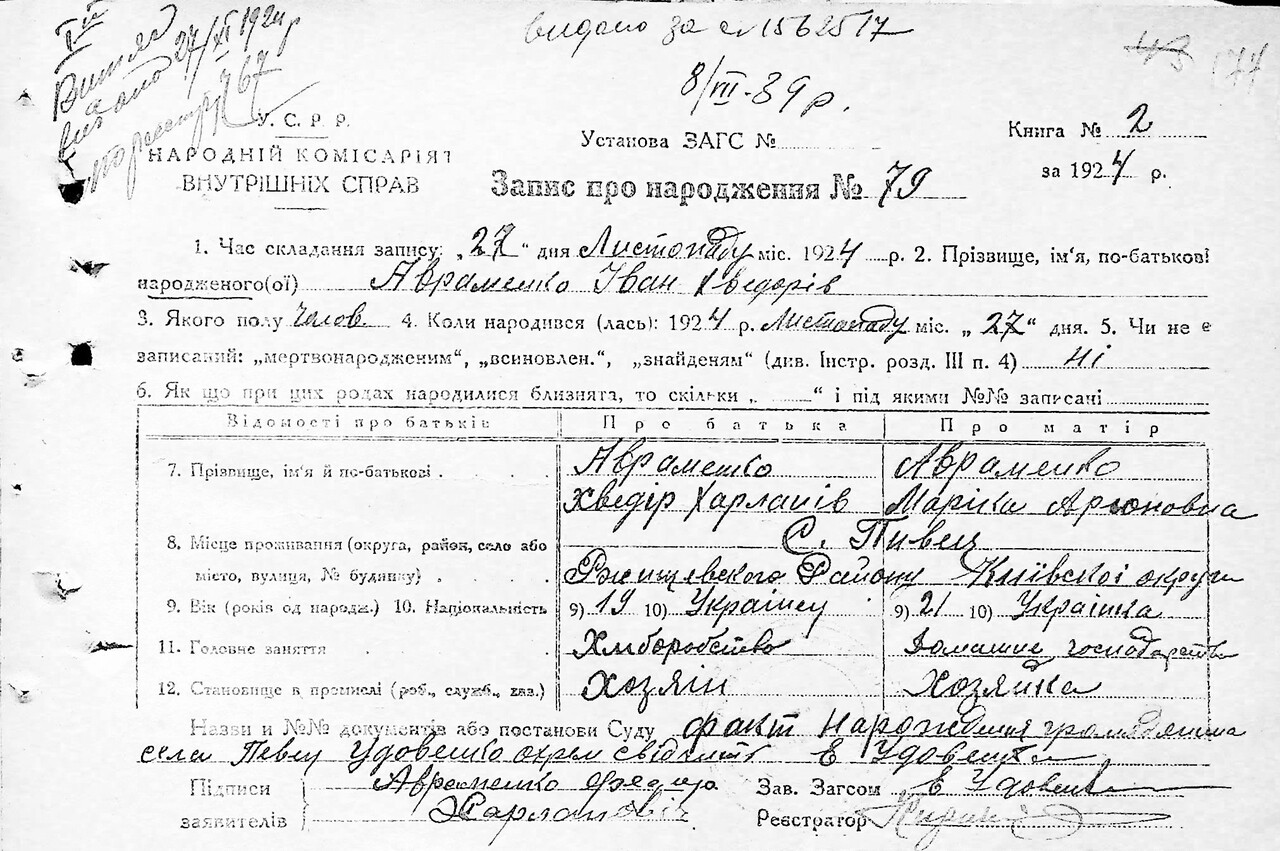 І ій
Витяг
видано 27/XI 1924 р
по реєстру 767
видано за с 1562517
8/VII-39 р.
43 174
У. С. Р. Р.
НАРОДНІЙ КОМІСАРІЯТ
ВНУТРІШНІХ СПРАВ
Установа ЗАГС №
Книга № 2
за 1924 р.
Запис про народження № 79
1. Час складання запису: „27“ дня Листопаду міс. 1924 р. 2. Прізвище, ім'я, по-батькові
народженого(ої) Авраменко Іван Хведорів
3. Якого полу Чолов 4. Коли народився (лась): 1924 р. Листопаду міс. „27“ дня. 5. Чи не є
записаний: „мертвонародженим“, „всиновлен.“, „знайденям“ (див. Інстр. розд. III п. 4) Ні
6. Як що при цих родах народилися близнята, то скільки „ “ і під якими №№ записані
Відомості про батьків Про батька Про матір
7. Прізвище, ім'я й по-батькові Авраменко Авраменко
Хведір Харлапів Маріка Арионовна
8. Місце проживання (округа, район, село або С. Пивец
місто, вулиця, № будинку) Ржищевского Району Київскої округи
9. Вік (років од народж.) 10. Національність 9) 19 10) Українец 9) 21 10) Українка
11. Головне заняття Хліборобство Домашне господарство
12. Становище в промислі (роб., служб., хаз.) Хозяїн Хозяйка
Назви и №№ документів або постанови Суду факт нарождения громадянина
села Певец Удовенко Е Удовенко
Підписи Авраменко Федір Зав. Загсом Е Удовенко
заявителів Харлапович Реєстратор